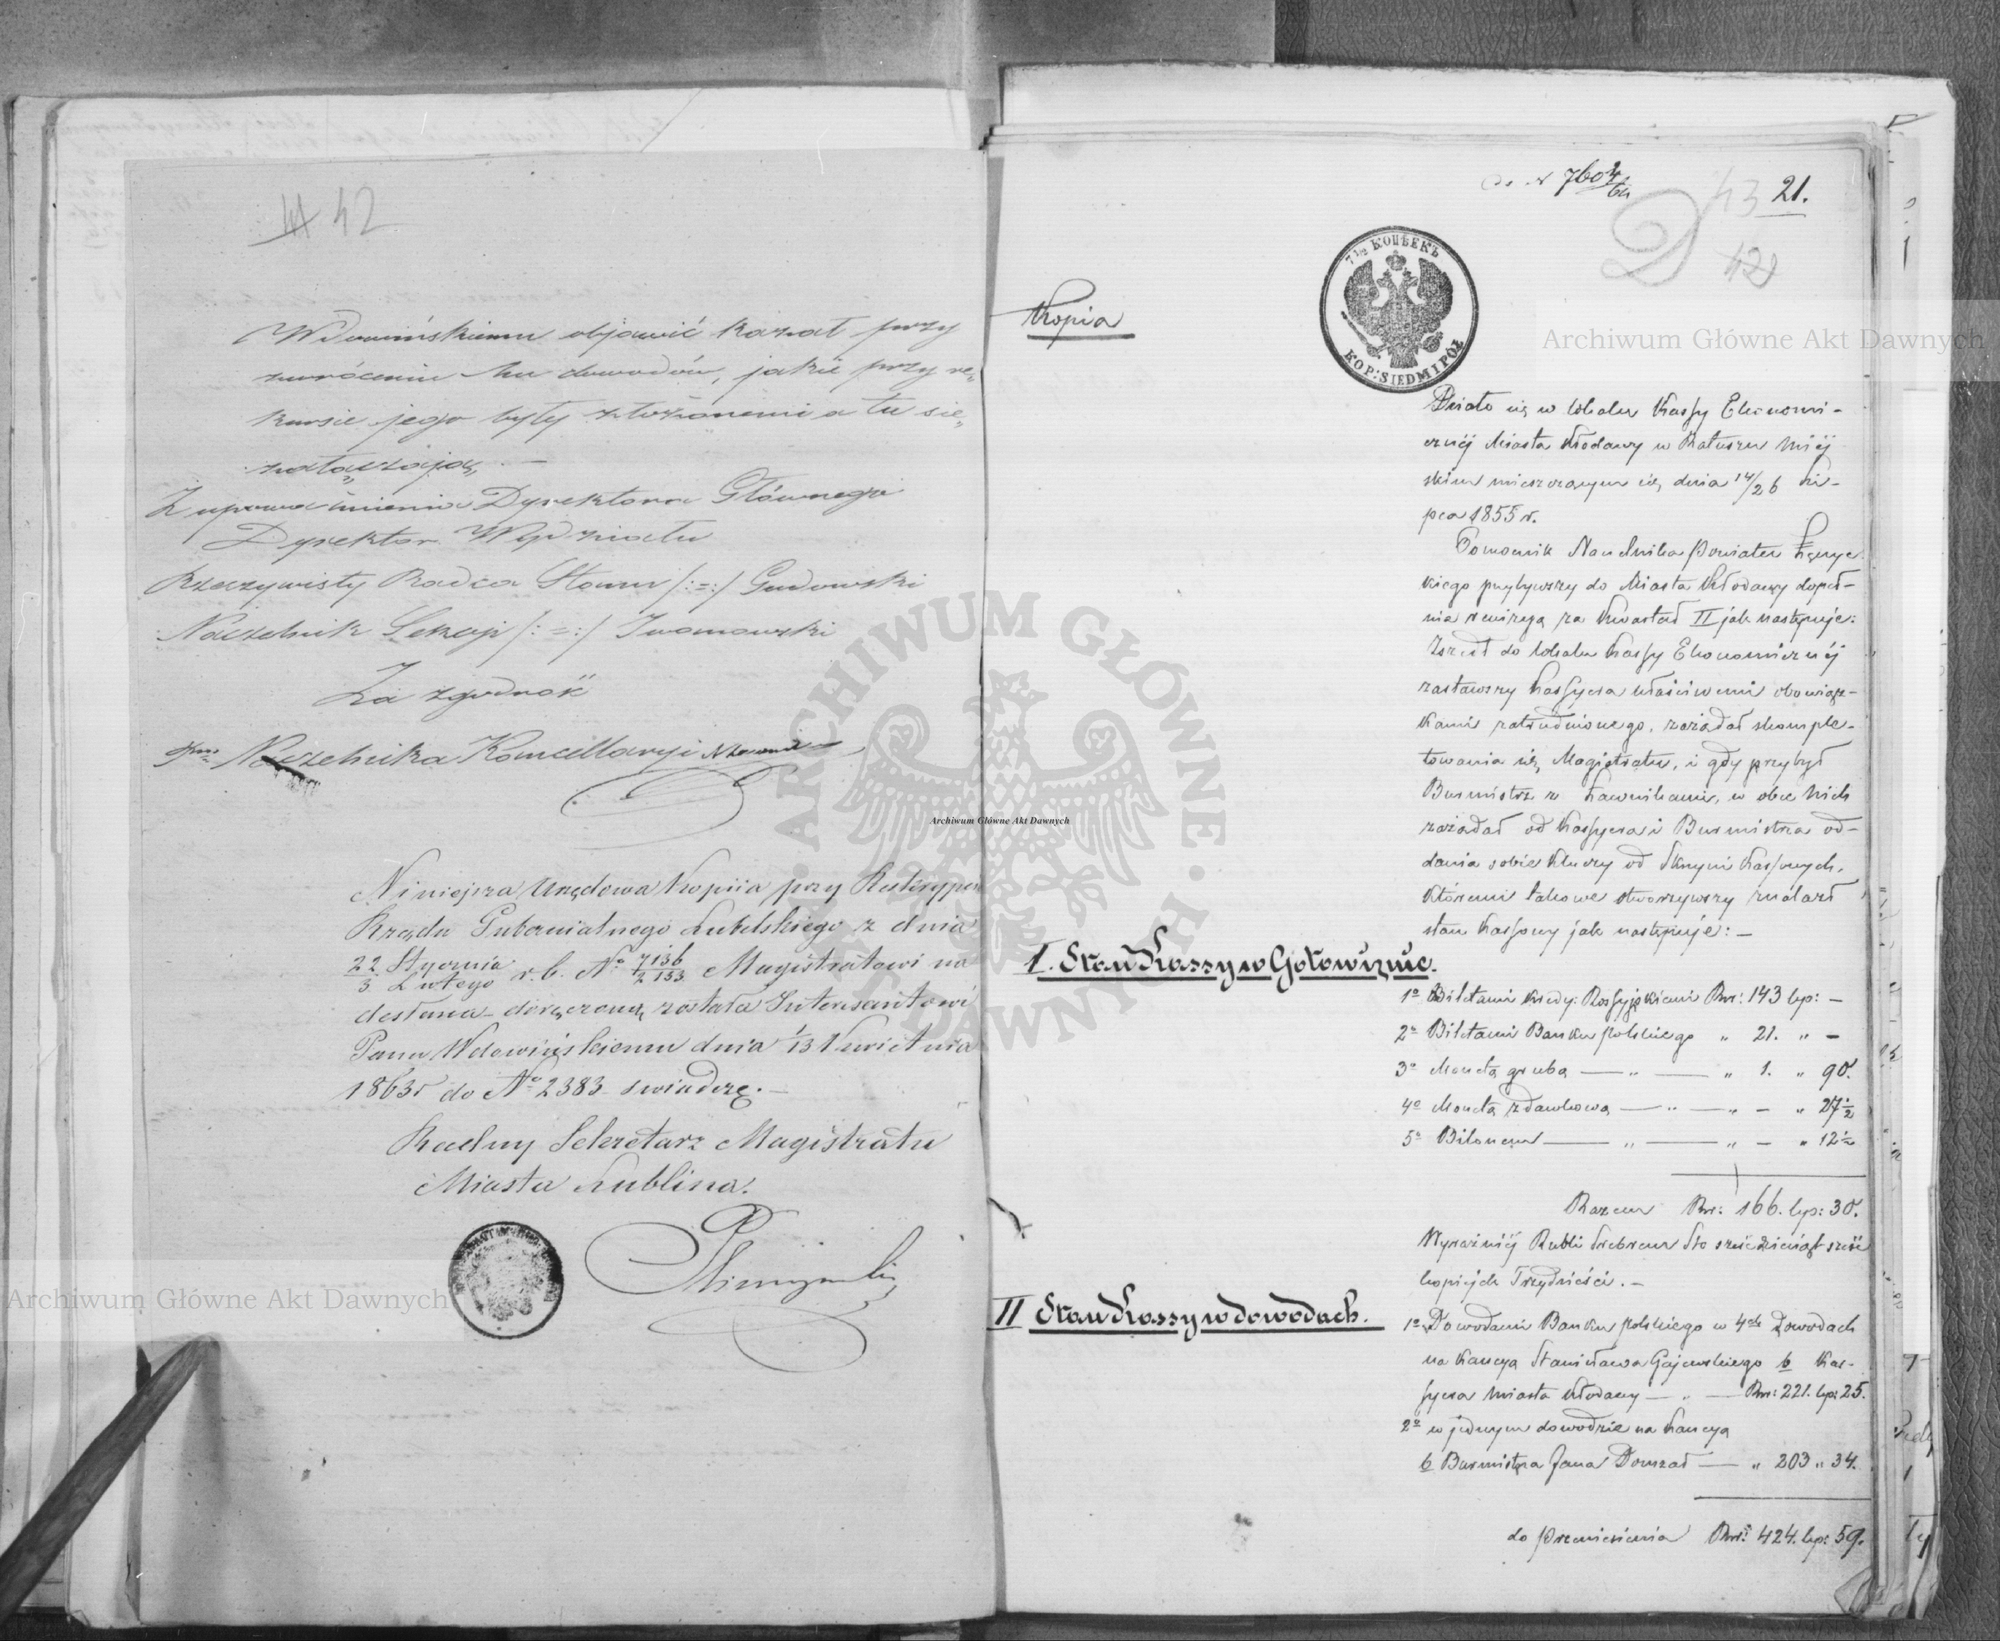 42
Wdowińskiemu objawić kazał przy
zwróceniu Mu dowodów, jakie przy re-
kursie jego były złożonemi a tu się
załączają. —
Z upoważnienia Dyrektora Głównego
Dyrektor Wydziału
Rzeczywisty Radca Stanu /:-:/ Gudowski
Naczelnik Sekcji /:-:/ Iwanowski
Za zgodność
Naczelnika Kancellaryi
Niniejsza Urzędowa Kopiia przy Reskrypcie
Rządu Gubernialnego Lubelskiego z dnia
22 Stycznia / 3 Lutego r. b. No 7136/2153 Magistratowi na
desłana – doręczoną została Interesantowi
Panu Wdowińskiemu dnia 1/13 Kwietnia
1863r do No 2383 świadczę. —
Radny Sekretarz Magistratu
Miasta Lublina.
43 21.
42
7½ КОПѢЕКЪ
KOP: SIEDMIPÓŁ
Kopia
Działo się w lokalu Kassy Ekonomi-
cznéj Miasta Kłodawy w Ratuszu Miéj
skim mieszczącym się, dnia 14/26 Li-
pca 1855 r.
Pomocnik Naczelnika Powiatu Łęczyc
kiego przybywszy do Miasta Kłodawy dopeł-
nia rewizyą za Kwartał II jak następuje:
Zszedł do lokalu Kassy Ekonomicznéj
zastawszy Kassyera właściwemi obowiąz-
kami zatrudnionego, zażądał skomple-
towania się Magistratu, i gdy przybył
Burmistrz z Ławnikami, w obec nich
zażądał od Kassyera i Burmistrza od-
dania sobie kluczy od Skrzyni Kassowych,
któremi takowe otworzywszy znalazł
stan Kassowy jak następuje: —
I. Stan Kassy w Gotowiźnie.
1o Biletami Kredy: Rossyjskiemi Rsr: 143 kp: —
2o Biletami Banku Polskiego „ 21. „ —
3o Monetą grubą — „ — „ 1. „ 90.
4o Monetą zdawkową — „ — „ — „ 27½
5o Bilonem — „ — „ — „ 12½
Razem Rsr: 166. kp: 30.
Wyraźniéj Rubli Srebrem Sto sześćdziesiąt sześć
kopiejek Trzydzieści. —
II Stan Kassy w dowodach.
1o Dowodami Banku Polskiego w 4ch Dowodach
na kaucyą Stanisława Gajewskiego b Kas-
syera Miasta Kłodawy — „ — Rsr: 221. kp: 25.
2o w jednym dowodzie na kaucyą
b Burmistrza Jana Domzał — „ 203 „ 34.
do Przeniesienia Rsr: 424. kp: 59.
Archiwum Główne Akt Dawnych
Archiwum Główne Akt Dawnych
Archiwum Główne Akt Dawnych
ARCHIWUM GŁÓWNE AKT DAWNYCH W